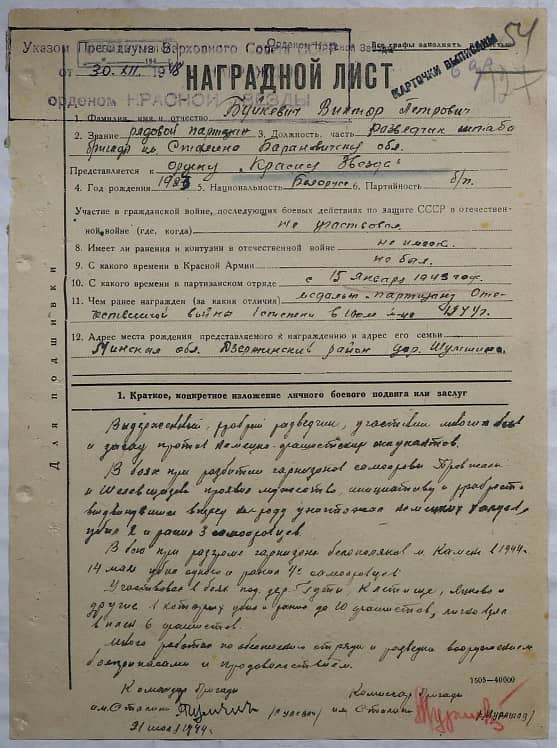 54
Указом Президиума Верховного Совета СССР
от 30.XII.1948
орденом КРАСНОЙ ЗВЕЗДЫ
Все графы заполнять
КАРТОЧКИ ВЫПИСАНЫ
НАГРАДНОЙ ЛИСТ
1. Фамилия, имя и отчество Буйкевич Виктор Петрович
2. Звание рядовой партизан 3. Должность, часть разведчик штаба
бригады им. Сталина Барановичская обл.
Представляется к ордену "Красная Звезда"
4. Год рождения 5. Национальность Белорус 6. Партийность б/п.
Участие в гражданской войне, последующих боевых действиях по защите СССР в отечествен-
ной войне (где, когда) не участвовал
8. Имеет ли ранения и контузии в отечественной войне не имеет.
9. С какого времени в Красной Армии не был.
10. С какого времени в партизанском отряде с 15 января 1943 год.
11. Чем ранее награжден (за какие отличия) медалью "партизану Оте-
чественной войны I степени в 1944 г.
12. Адрес места рождения представляемого к награждению и адрес его семьи
Минская обл. Дзержинский район дер.
Для подшивки
1. Краткое, конкретное изложение личного боевого подвига или заслуг
Выдержанный, храбрый разведчик, участник многих боев
и засад против немецко-фашистских оккупантов.
В боях при разбитии гарнизонов самооровы
и проявил мужество, инициативу и храбрость
выдвинувшись вперед
убил 2 и ранил 3 самооровцев.
В бою при разгроме гарнизона белополяков м. Камень в 1944 г.
14 мая убил одного и ранил самооровцев
Участвовал в боях под дер. Гуты, и
другие в которых убил и ранил до 10 фашистов, лично взял
в плен 6 фашистов.
Много работал по обеспечению отряда и разведки вооружением
боеприпасами и продовольствием.
1505-40000
Командир бригады Комиссар бригады
им. Сталина (Гулевич) им. Сталина (Мурашов)
1944 г.